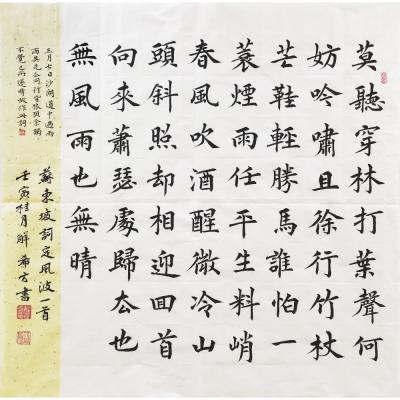 莫聽穿林打葉聲何
妨吟嘯且徐行竹杖
芒鞋輕勝馬誰怕一
蓑煙雨任平生料峭
春風吹酒醒微冷山
頭斜照却相迎回首
向來蕭瑟處歸厺也
無風雨也無晴
三月七日沙湖道中遇雨
雨具先去同行皆狼狽余獨
不覺已而遂晴故作此詞
蘇東坡詞定風波一首
壬寅桂月解希方書